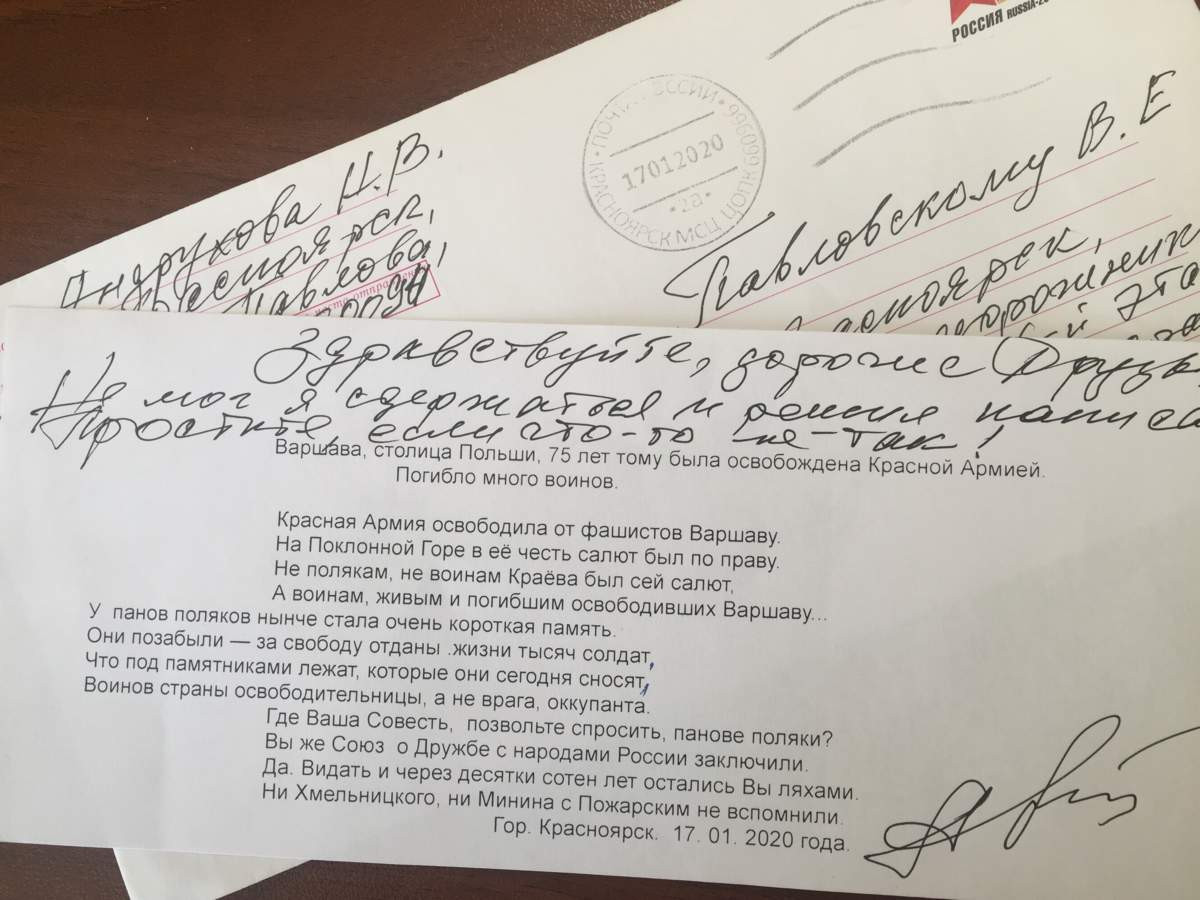 РОССИЯ RUSSIA-20
ПОЧТА РОССИИ • 660966
17012020
2а
КРАСНОЯРСК МСЦ ЦОПК
Андрухова Н.В.
Красноярск,
Павлова,
Павловскому В. Е
Красноярск,
Здравствуйте, дорогие Друзья
Не мог я сдержаться и решил написа
Простите, если что-то не-так!
Варшава, столица Польши, 75 лет тому была освобождена Красной Армией.
Погибло много воинов.
Красная Армия освободила от фашистов Варшаву.
На Поклонной Горе в её честь салют был по праву.
Не полякам, не воинам Краёва был сей салют,
А воинам, живым и погибшим освободивших Варшаву...
У панов поляков нынче стала очень короткая память.
Они позабыли — за свободу отданы .жизни тысяч солдат,
Что под памятниками лежат, которые они сегодня сносят,
Воинов страны освободительницы, а не врага, оккупанта.
Где Ваша Совесть, позвольте спросить, панове поляки?
Вы же Союз о Дружбе с народами России заключили.
Да. Видать и через десятки сотен лет остались Вы ляхами.
Ни Хмельницкого, ни Минина с Пожарским не вспомнили.
Гор. Красноярск. 17. 01. 2020 года.